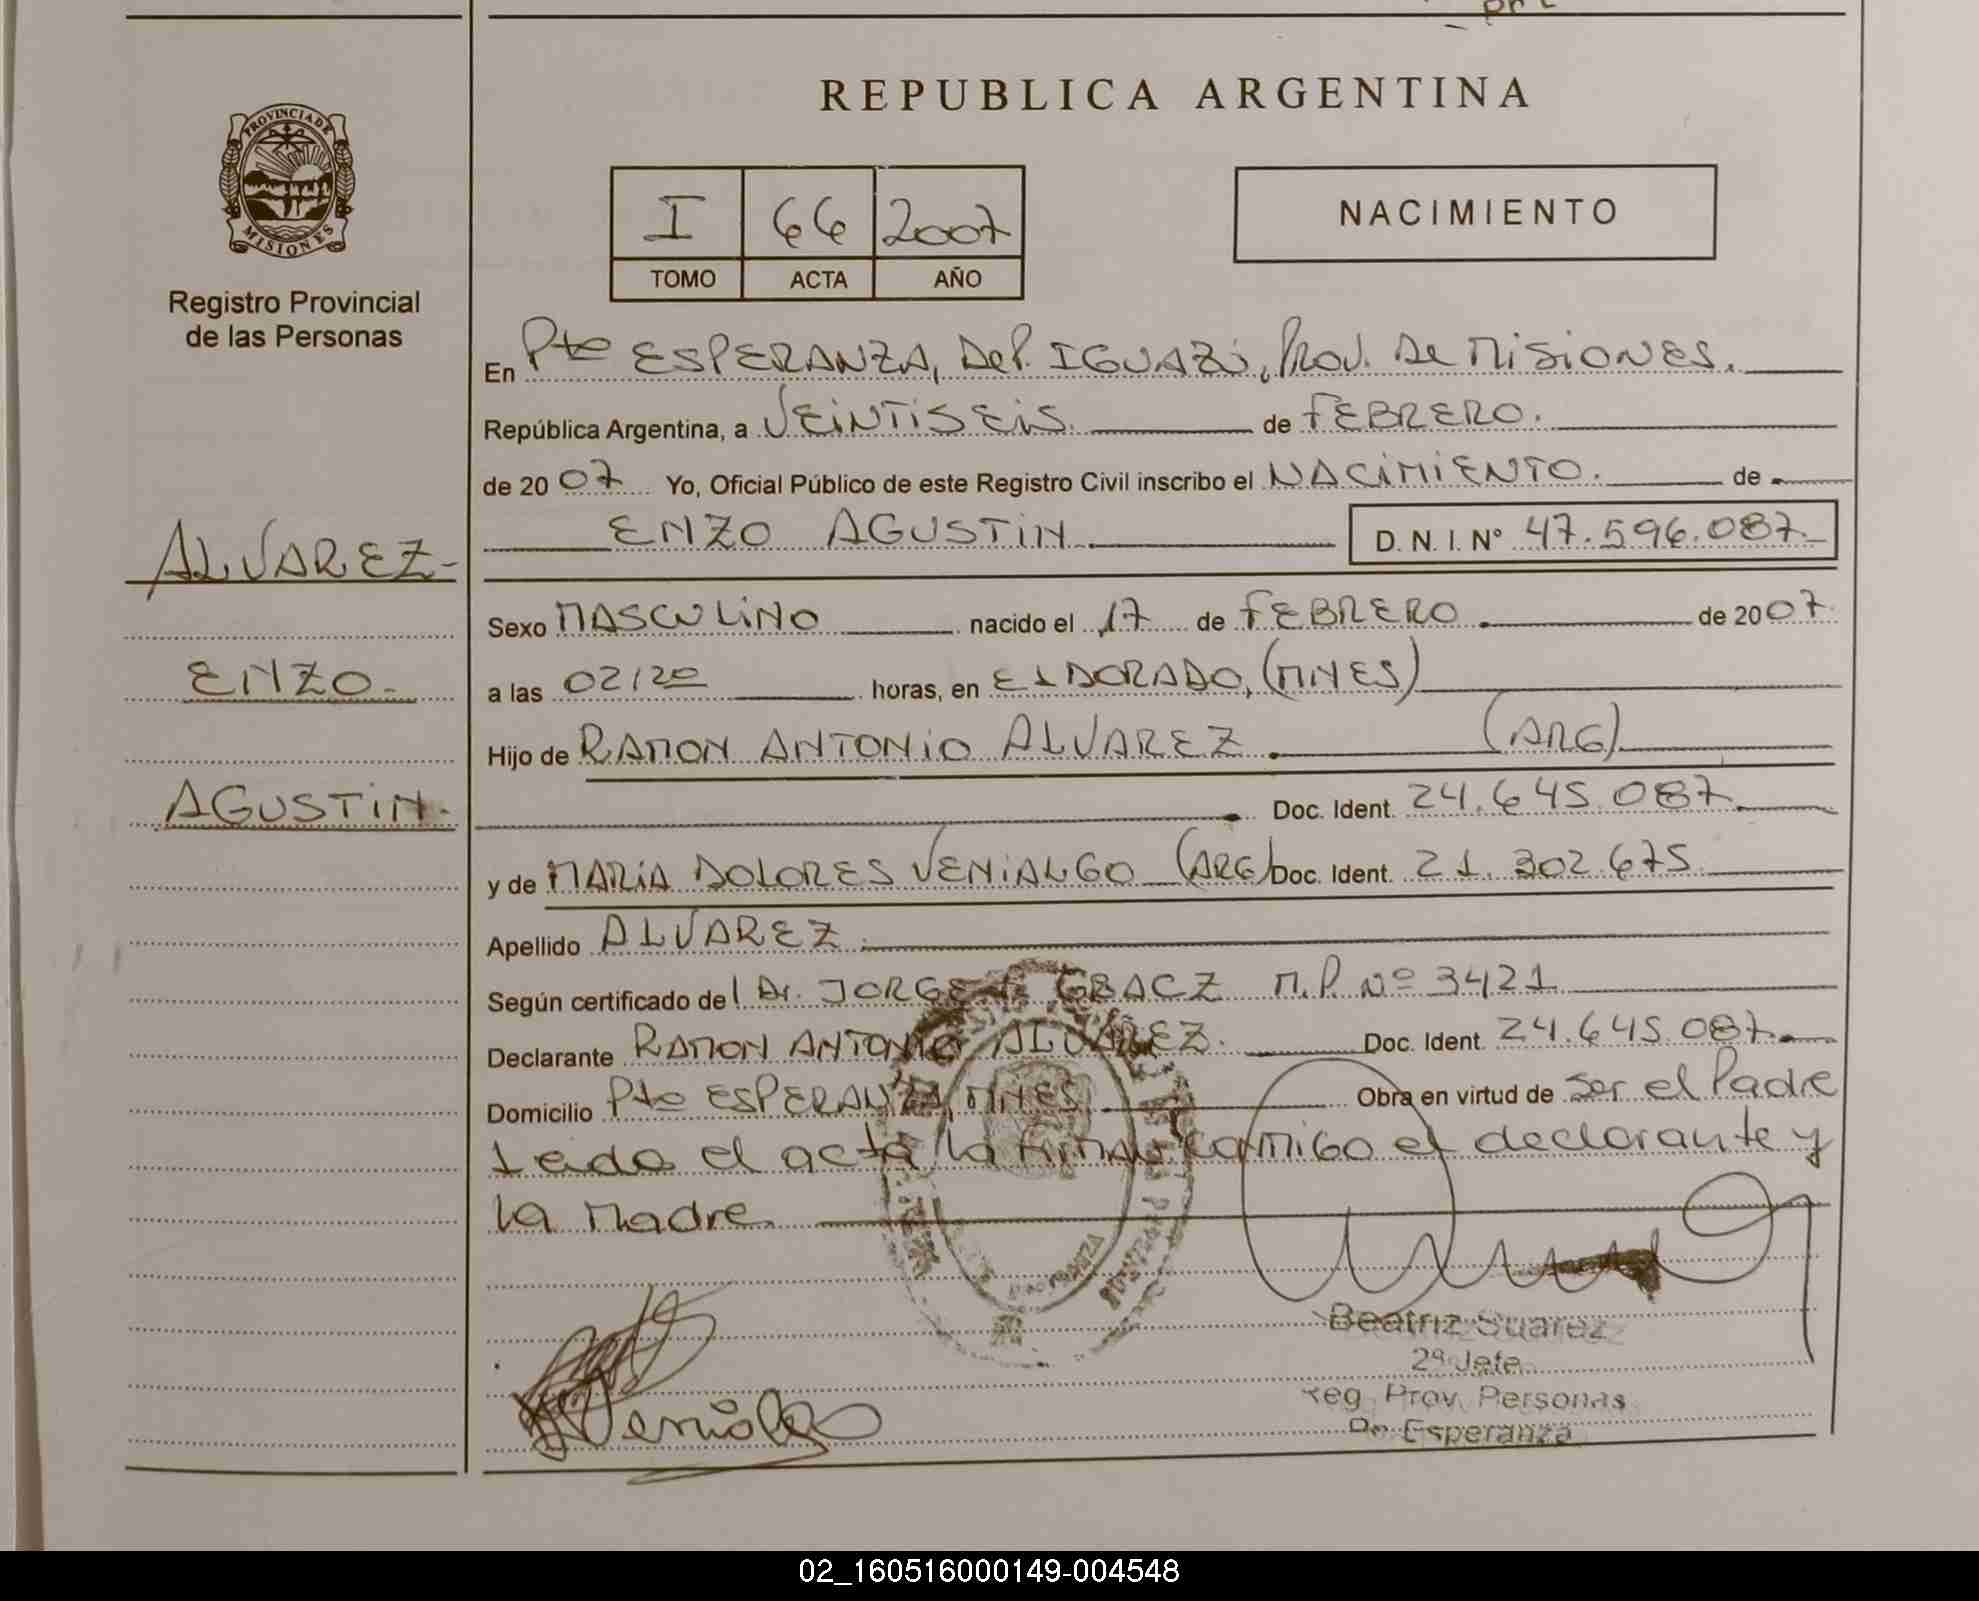 REPUBLICA ARGENTINA
PROVINCIA DE
MISIONES
Registro Provincial
de las Personas
I 66 2007
TOMO ACTA AÑO
NACIMIENTO
En Pto ESPERANZA, Dep. IGUAZÚ, Prov. De Misiones.
República Argentina, a VEINTISEIS. de FEBRERO.
de 2007 Yo, Oficial Público de este Registro Civil inscribo el NACIMIENTO. de
ENZO AGUSTIN D. N. I. N° 47.596.087.
ALVAREZ-
Sexo MASCULINO nacido el 17 de FEBRERO de 2007.
ENZO.
a las 02/20 horas, en ELDORADO, (MNES)
Hijo de RAMON ANTONIO ALVAREZ (ARG)
AGUSTIN.
Doc. Ident. 24.645.087
y de MARIA DOLORES VENIALGO (ARG) Doc. Ident. 21.302.675
Apellido ALVAREZ
Según certificado del Dr. JORGE GBACZ M.P. Nº 3421
Declarante RAMON ANTONIO ALVAREZ. Doc. Ident. 24.645.087.
Domicilio Pto ESPERANZA, MNES Obra en virtud de ser el Padre
Leida el acta la firma conmigo el declarante y
la Madre.
Venialgo
Beatriz Suarez
2ª Jefe
Reg. Prov. Personas
Esperanza
02_160516000149-004548